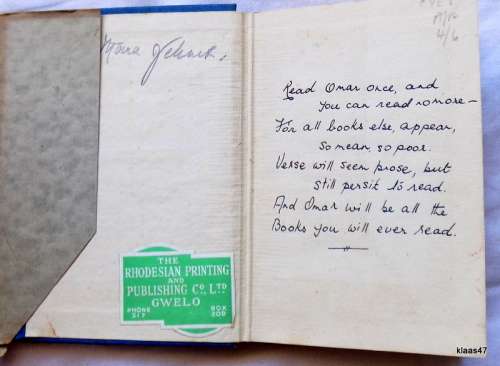 Read Omar once, and
you can read no more —
For all books else, appear,
so mean, so poor.
Verse will seem prose, but
still persit to read.
And Omar will be all the
Books you will ever read.
THE
RHODESIAN PRINTING
AND
PUBLISHING CO., LTD
GWELO
PHONE
217
BOX
209
4/6
klaas47